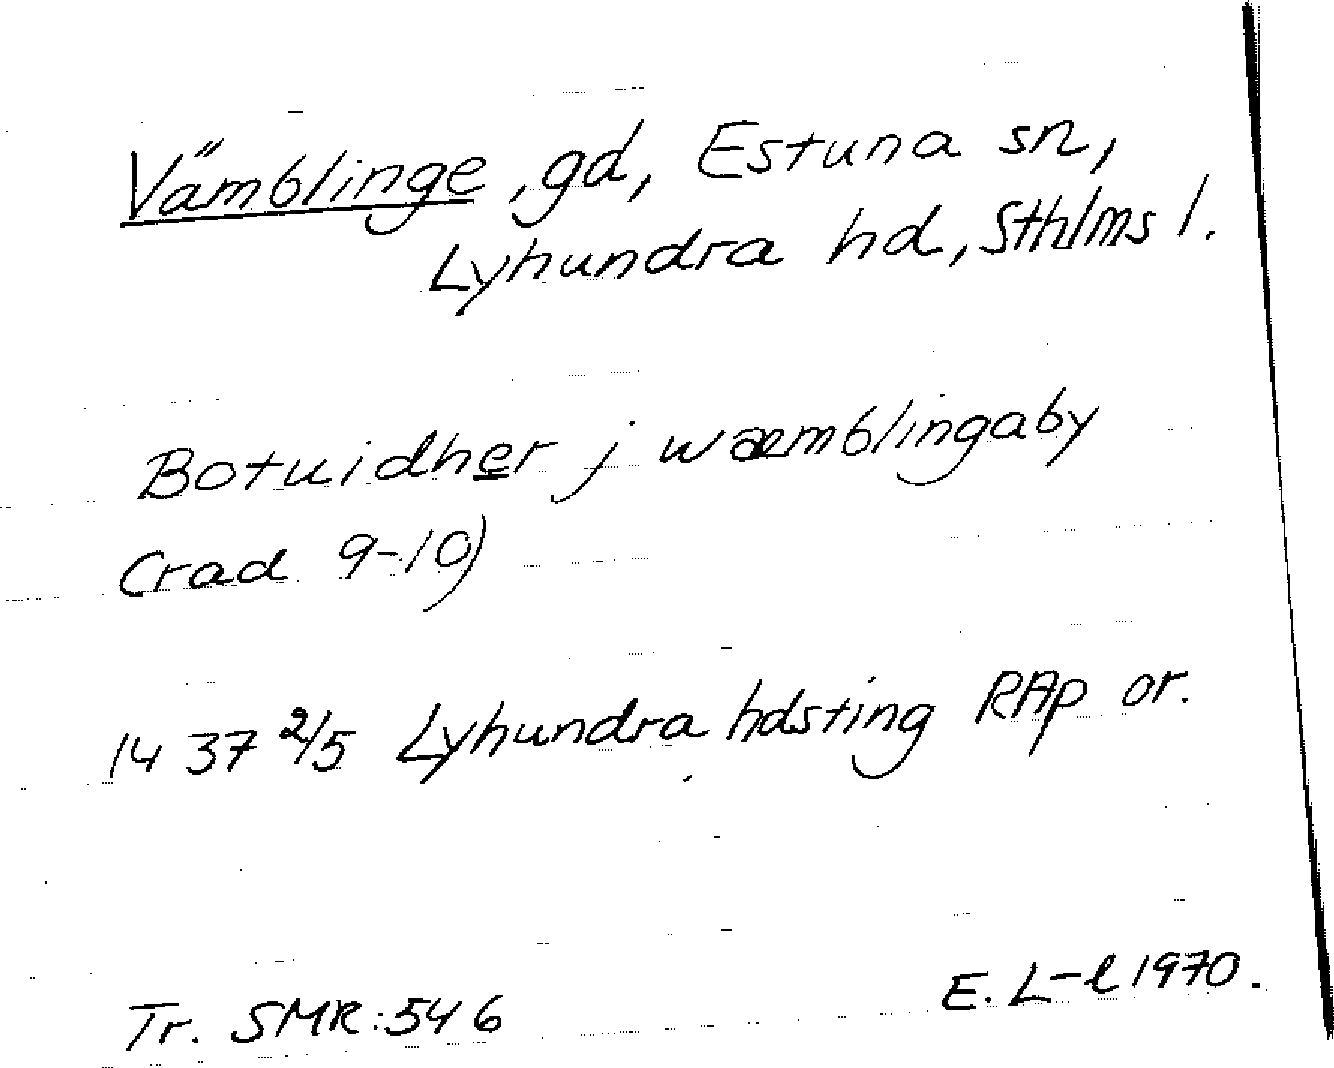 Vämblinge, gd, Estuna sn,
Lyhundra hd, Sthlms l.
Botuidher j wæmblingaby
(rad 9-10)
1437 2/5 Lyhundra hdsting RAp or.
Tr. SMR: 546
E. L-l 1970.